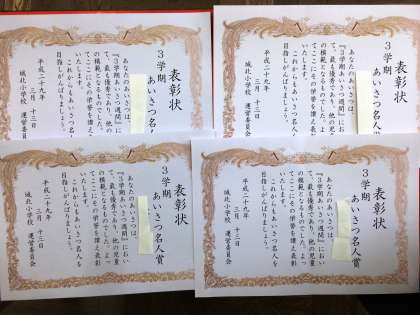 表彰状
3学期 あいさつ名人賞
あなたのあいさつは、
『3学期あいさつ週間』におい
て、最も優秀であり、他の児童
の模範となるものでした。よっ
てここにその栄誉を讃え表彰
いたします。
これからもあいさつ名人を
目指しがんばりましょう。
平成二十九年
三月 十三日
城北小学校 運営委員会
表彰状
3学期 あいさつ名人賞
あなたのあいさつは、
『3学期あいさつ週間』におい
て、最も優秀であり、他の児童
の模範となるものでした。よっ
てここにその栄誉を讃え表彰
いたします。
これからもあいさつ名人を
目指しがんばりましょう。
平成二十九年
三月 十三日
城北小学校 運営委員会
表彰状
3学期 あいさつ名人賞
あなたのあいさつは、
『3学期あいさつ週間』におい
て、最も優秀であり、他の児童
の模範となるものでした。よっ
てここにその栄誉を讃え表彰
いたします。
これからもあいさつ名人を
目指しがんばりましょう。
平成二十九年
三月 十三日
城北小学校 運営委員会
表彰状
3学期 あいさつ名人賞
あなたのあいさつは、
『3学期あいさつ週間』におい
て、最も優秀であり、他の児童
の模範となるものでした。よっ
てここにその栄誉を讃え表彰
いたします。
これからもあいさつ名人を
目指しがんばりましょう。
平成二十九年
三月 十三日
城北小学校 運営委員会